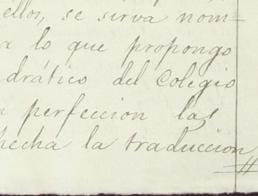 ellos, se sirva nom-
a lo que propongo
drático del Colegio
perfeccion las
hecha la traduccion